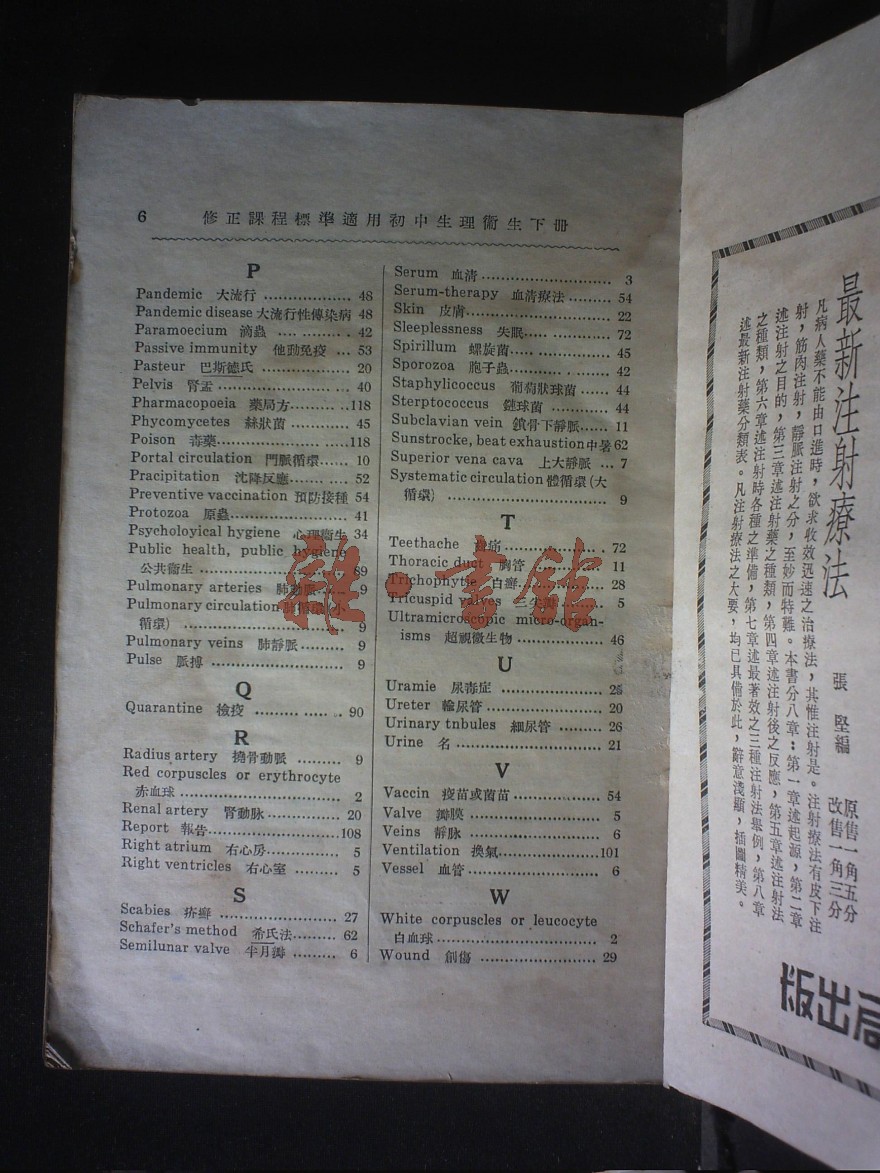 6 修正課程標準適用初中生理衞生下冊
P
Pandemic 大流行 .................. 48
Pandemic disease 大流行性傳染病 48
Paramoecium 滴蟲 .... .......... 42
Passive immunity 他動免疫 ... 53
Pasteur 巴斯德氏 .................. 20
Pelvis 腎盂 ........................... 40
Pharmacopoeia 藥局方........ ..118
Phycometes 絲狀菌 ............ 45
Poison 毒藥...........................118
Portal circulation 門脈循環...... 10
Pracipitation 沈降反應....... .... 52
Preventive vaccination 預防接種 54
Protozoa 原蟲........................ 41
Psycholoyical hygiene 心理衞生 34
Public health, public hygiene
公共衞生 ........................... 89
Pulmonary arteries 肺動脈...... 9
Pulmonary circulation
循環) .............................. 9
Pulmonary veins 肺靜脈......... 9
Pulse 脈搏 ........................... 9
Q
Quarantine 檢疫 ......... ... .. 90
R
Radius artery 撓骨動脈 ......... 9
Red corpuscles or erythrocyte
赤血球 .............................. 2
Renal artery 腎動脉............... 20
Report 報告...........................108
Right atrium 右心房............... 5
Right ventricles 右心室 ......... 5
S
Scabies 疥癬 ........................ 27
Schafer's method 希氏法......... 62
Semilunar valve 半月瓣 ......... 6
Serum 血清 ........................... 3
Serum-therapy 血清療法......... 54
Skin 皮膚.............................. 22
Sleeplessness 失眠.................. 72
Spirillum 螺旋菌..... ............ 45
Sporozoa 胞子蟲........... . ...... 42
Staphylicoccus 葡萄狀球菌...... 44
Sterptococcus 鏈球菌 ............ 44
Subclavian vein 鎖骨下靜脈...... 11
Sunstrocke, beat exhaustion中暑 62
Superior vena cava 上大靜脈 ... 7
Systematic circulation 體循環(大
循環) .............................. 9
T
Teethache 齒痛 ..................... 72
Thoracic duct 胸管 ............... 11
Trichophytie 白癬.................. 28
Tricuspid valves 三尖瓣 ......... 5
Ultramicroscopic micro-organ-
isms 超視微生物 ............... 46
U
Uramie 尿毒症 ..................... 25
Ureter 輸尿管........................ 20
Urinary tnbules 細尿管 ......... 26
Urine 名 .............................. 21
V
Vaccin 疫苗或菌苗 ............... 54
Valve 瓣膜 ........................... 5
Veins 靜脉 ........................... 6
Ventilation 換氣.....................101
Vessel 血管 ........................... 6
W
White corpuscles or leucocyte
白血球.............................. 2
Wound 創傷 ........................ 29
雜·書館
最新注射療法
張堅編
原售一角五分
改售一角三分
凡病人藥不能由口進時,欲求收效迅速之治療法,其惟注射是。注射療法有皮下注
射,筋肉注射,靜脈注射之分,至妙而特難。本書分八章:第一章述起源,第二章
述注射之目的,第三章述注射藥之種類,第四章述注射後之反應,第五章述注射法
之種類,第六章述注射時各種之準備,第七章述最著效之三種注射法舉例,第八章
述最新注射藥分類表。凡注射療法之大要,均已具備於此,辭意淺顯,插圖精美。
局出版